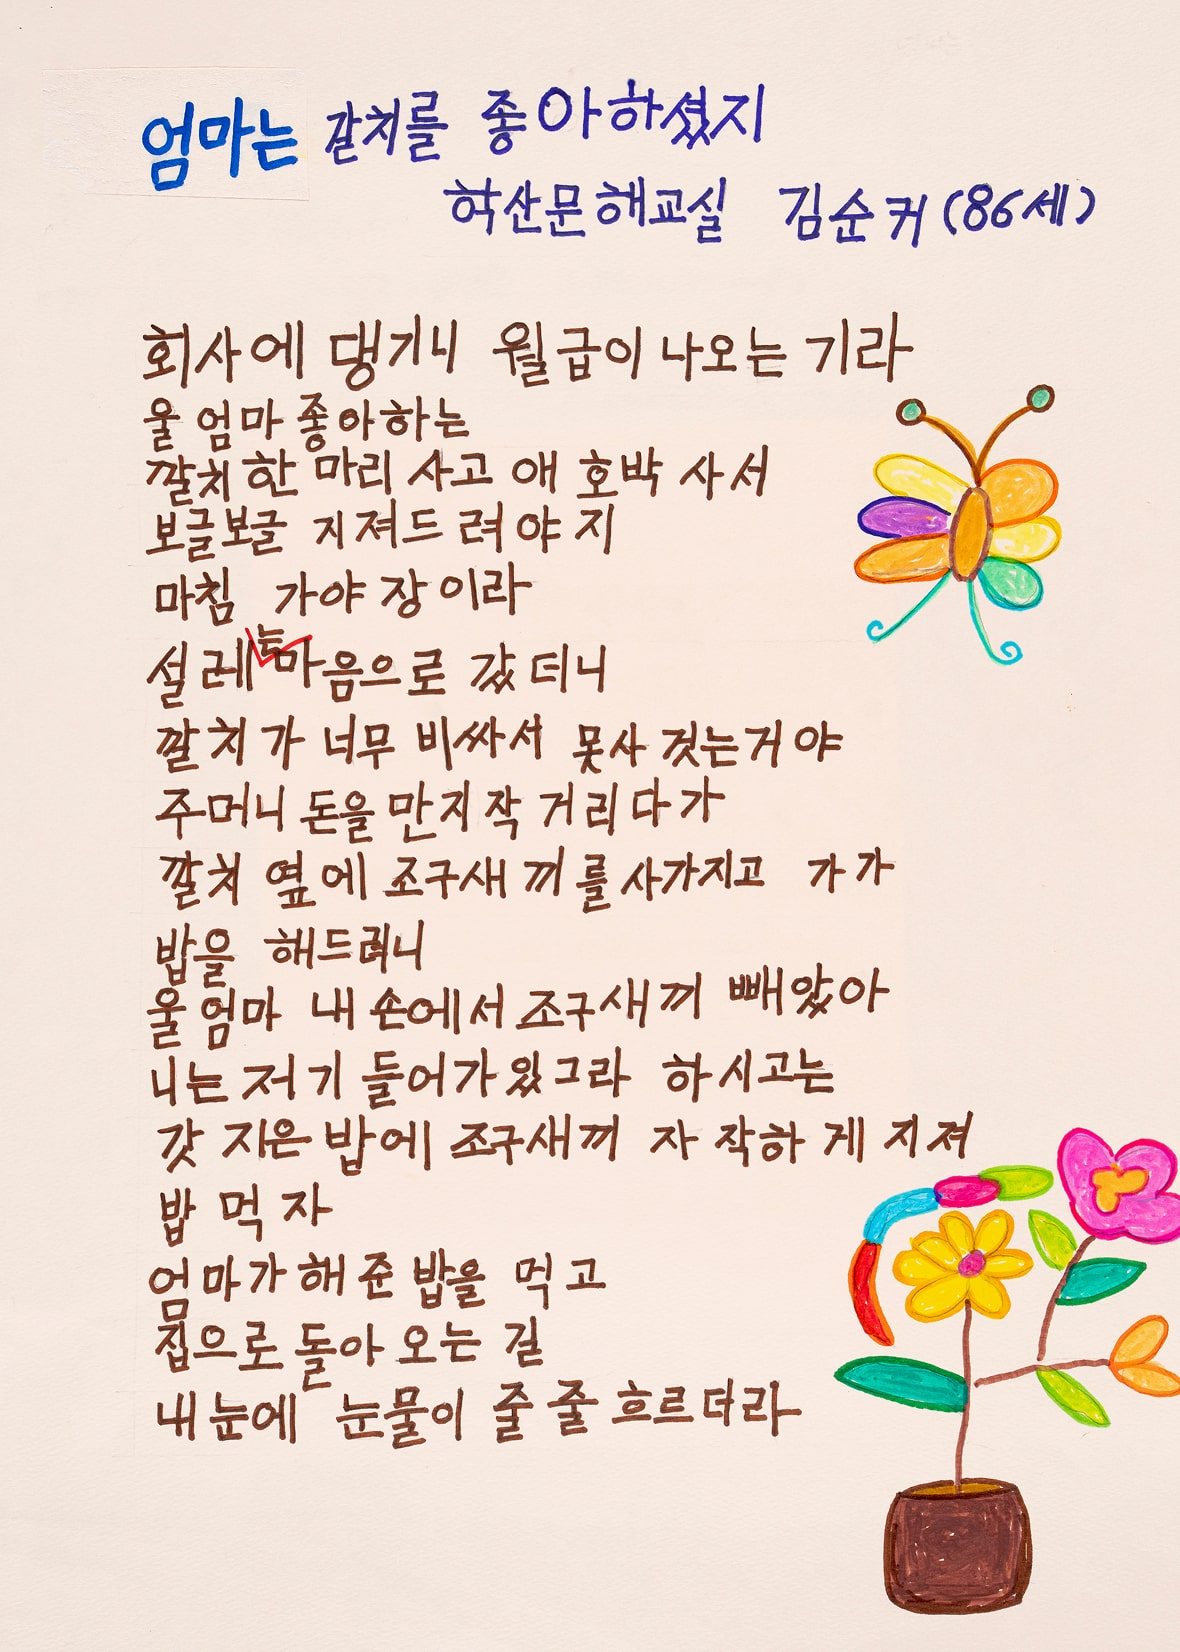 엄마는 갈치를 좋아하셨지
학산문해교실 김순커(86세)
회사에 댕기니 월급이 나오는 기라
울 엄마 좋아하는
깔치 한 마리 사고 애 호박 사서
보글보글 지져드 려야 지
마침 가야 장이라
설레는 마음으로 갔 더니
깔치가 너무 비싸서 못사 겄는거야
주머니 돈을 만지작 거리다가
깔치 옆에 조구새끼를 사가지고 가가
밥을 해드려니
울 엄마 내 손에서 조구새끼 빼았아
니는 저기 들어가 있그라 하시고는
갓 지은 밥에 조구새끼 자작하게 지져
밥 먹자
엄마가 해준 밥을 먹고
집으로 돌아 오는 길
내눈에 눈물이 줄 줄 흐르더라